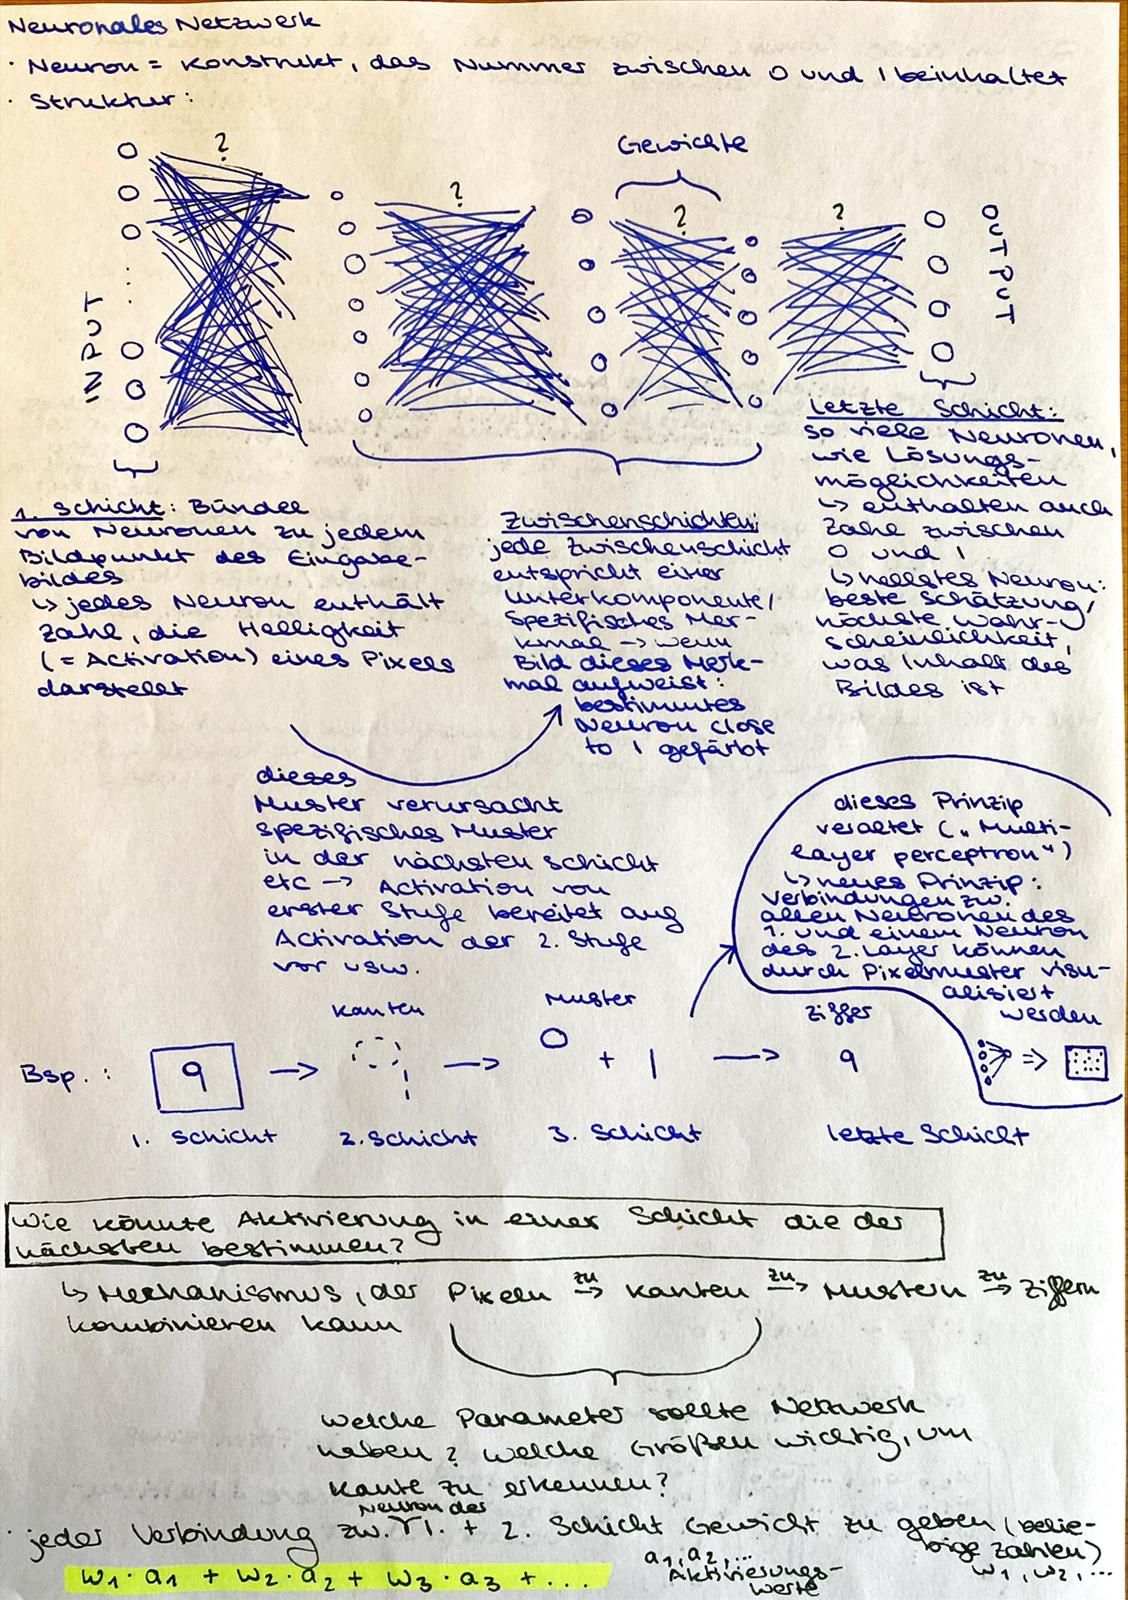 Neuronales Netzwerk
· Neuron = Konstrukt, das Nummer zwischen 0 und 1 beinhaltet
· Struktur:
Gewichte
? ? ? ?
INPUT
OUTPUT
1. Schicht: Bündel
von Neuronen zu jedem
Bildpunkt des Eingabe-
bildes
↳ jedes Neuron enthält
Zahl, die Helligkeit
(= Activation) eines Pixels
darstellt
Zwischenschichten:
jede Zwischenschicht
entspricht einer
Unterkomponente/
Spezifisches Mer-
kmal → wenn
Bild dieses Merk-
mal aufweist:
bestimmtes
Neuron close
to 1 gefärbt
letzte Schicht:
so viele Neuronen,
wie Lösungs-
möglichkeiten
↳ enthalten auch
Zahl zwischen
0 und 1
↳ hellstes Neuron:
beste Schätzung/
höchste Wahr-
scheinlichkeit,
was Inhalt des
Bildes ist
dieses
Muster verursacht
spezifisches Muster
in der nächsten Schicht
etc → Activation von
erster Stufe bereitet auf
Activation der 2. Stufe
vor usw.
dieses Prinzip
veraltet („Multi-
layer perceptron")
↳ neues Prinzip:
Verbindungen zw.
allen Neuronen des
1. und einem Neuron
des 2. Layer können
durch Pixelmuster visu-
alisiert
werden
⇒
Kanten
Muster
Ziffer
Bsp.: 9 → → + | → 9
1. Schicht 2. Schicht 3. Schicht letzte Schicht
Wie könnte Aktivierung in einer Schicht die der
nächsten bestimmen?
↳ Mechanismus, der Pixeln zu → Kanten zu → Mustern zu → Ziffern
kombinieren kann
welche Parameter sollte Netzwerk
haben? welche Größen wichtig, um
Kante zu erkennen?
· jeder Verbindung zw. Neuron der 1. + 2. Schicht Gewicht zu geben (belie-
bige Zahlen)
w1, w2, ...
a1, a2, ...
Aktivierungs-
werte
w1 · a1 + w2 · a2 + w3 · a3 + ...